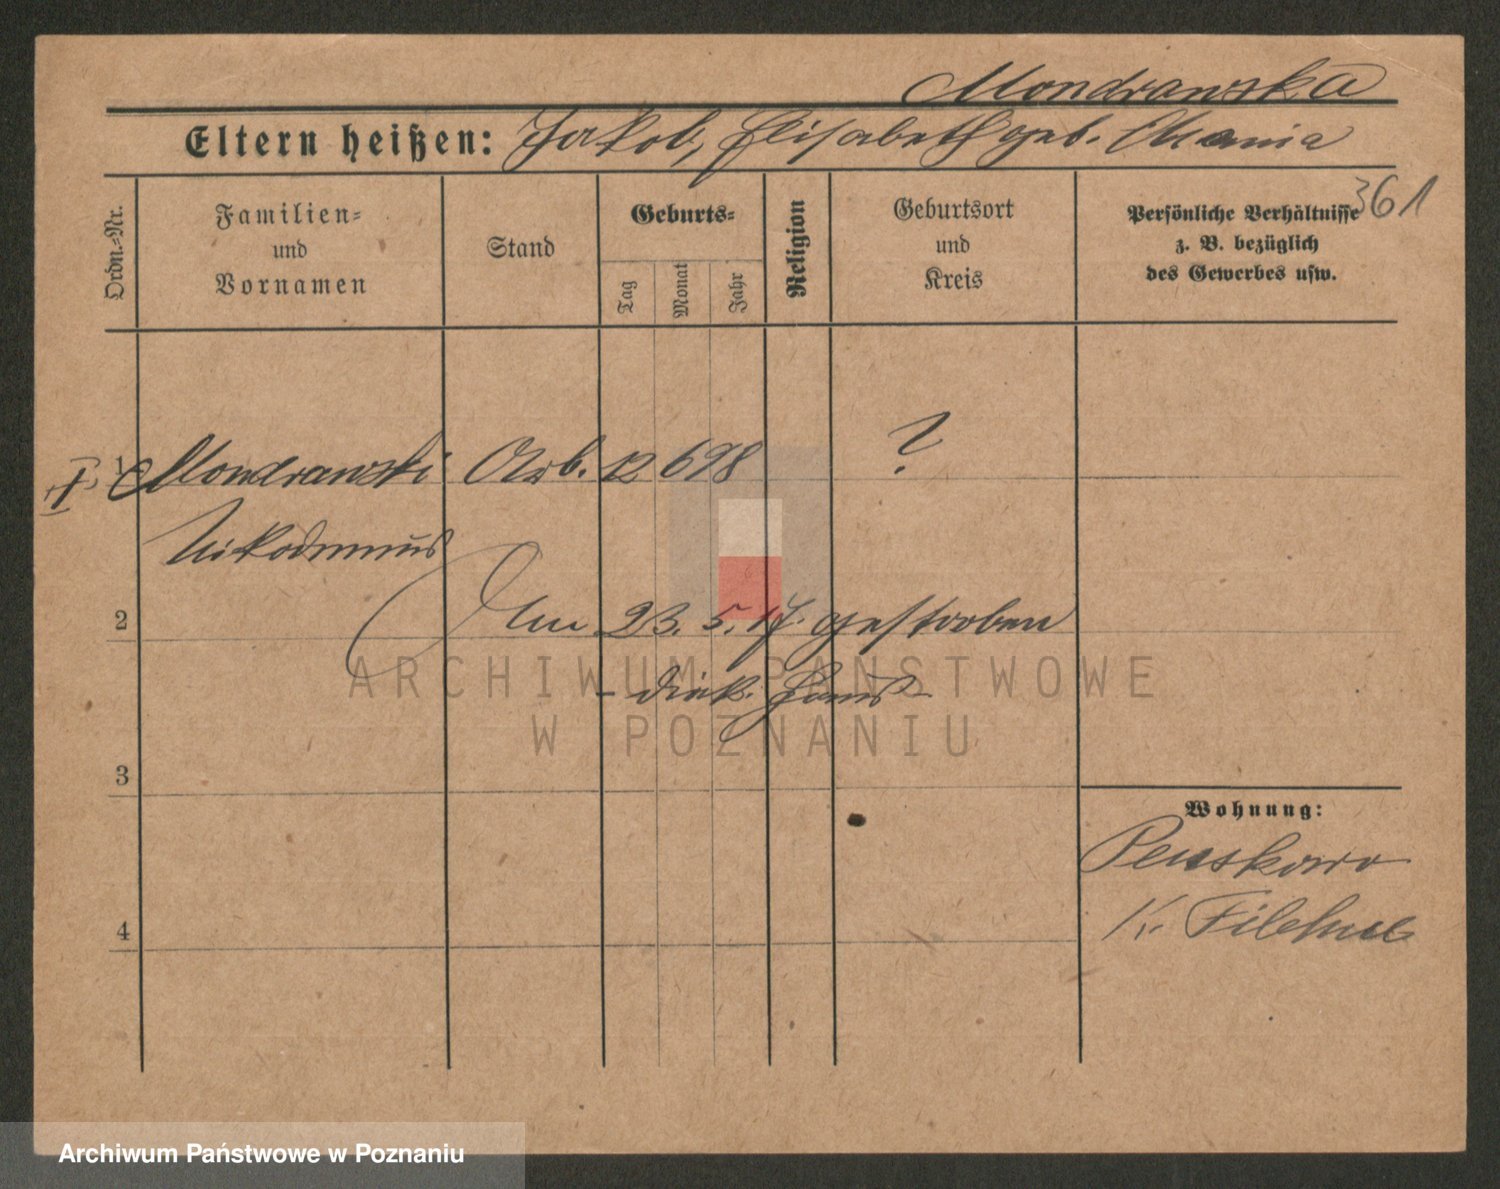 Mondrawska
Eltern heißen: Jakob, Elisabeth geb. Mania
361
Ordn.-Nr.
Familien-
und
Vornamen
Stand
Geburts-
Tag
Monat
Jahr
Religion
Geburtsort
und
Kreis
Persönliche Verhältnisse
z. B. bezüglich
des Gewerbes usw.
I 1 Mondrawski Arb. 12 6 98 ?
Nikodemus
2 Am 23. 5. 17. gestorben
- Diak. Haus -
3
Wohnung:
Penskowo
K. Filehne
4
ARCHIWUM PAŃSTWOWE
W POZNANIU
Archiwum Państwowe w Poznaniu